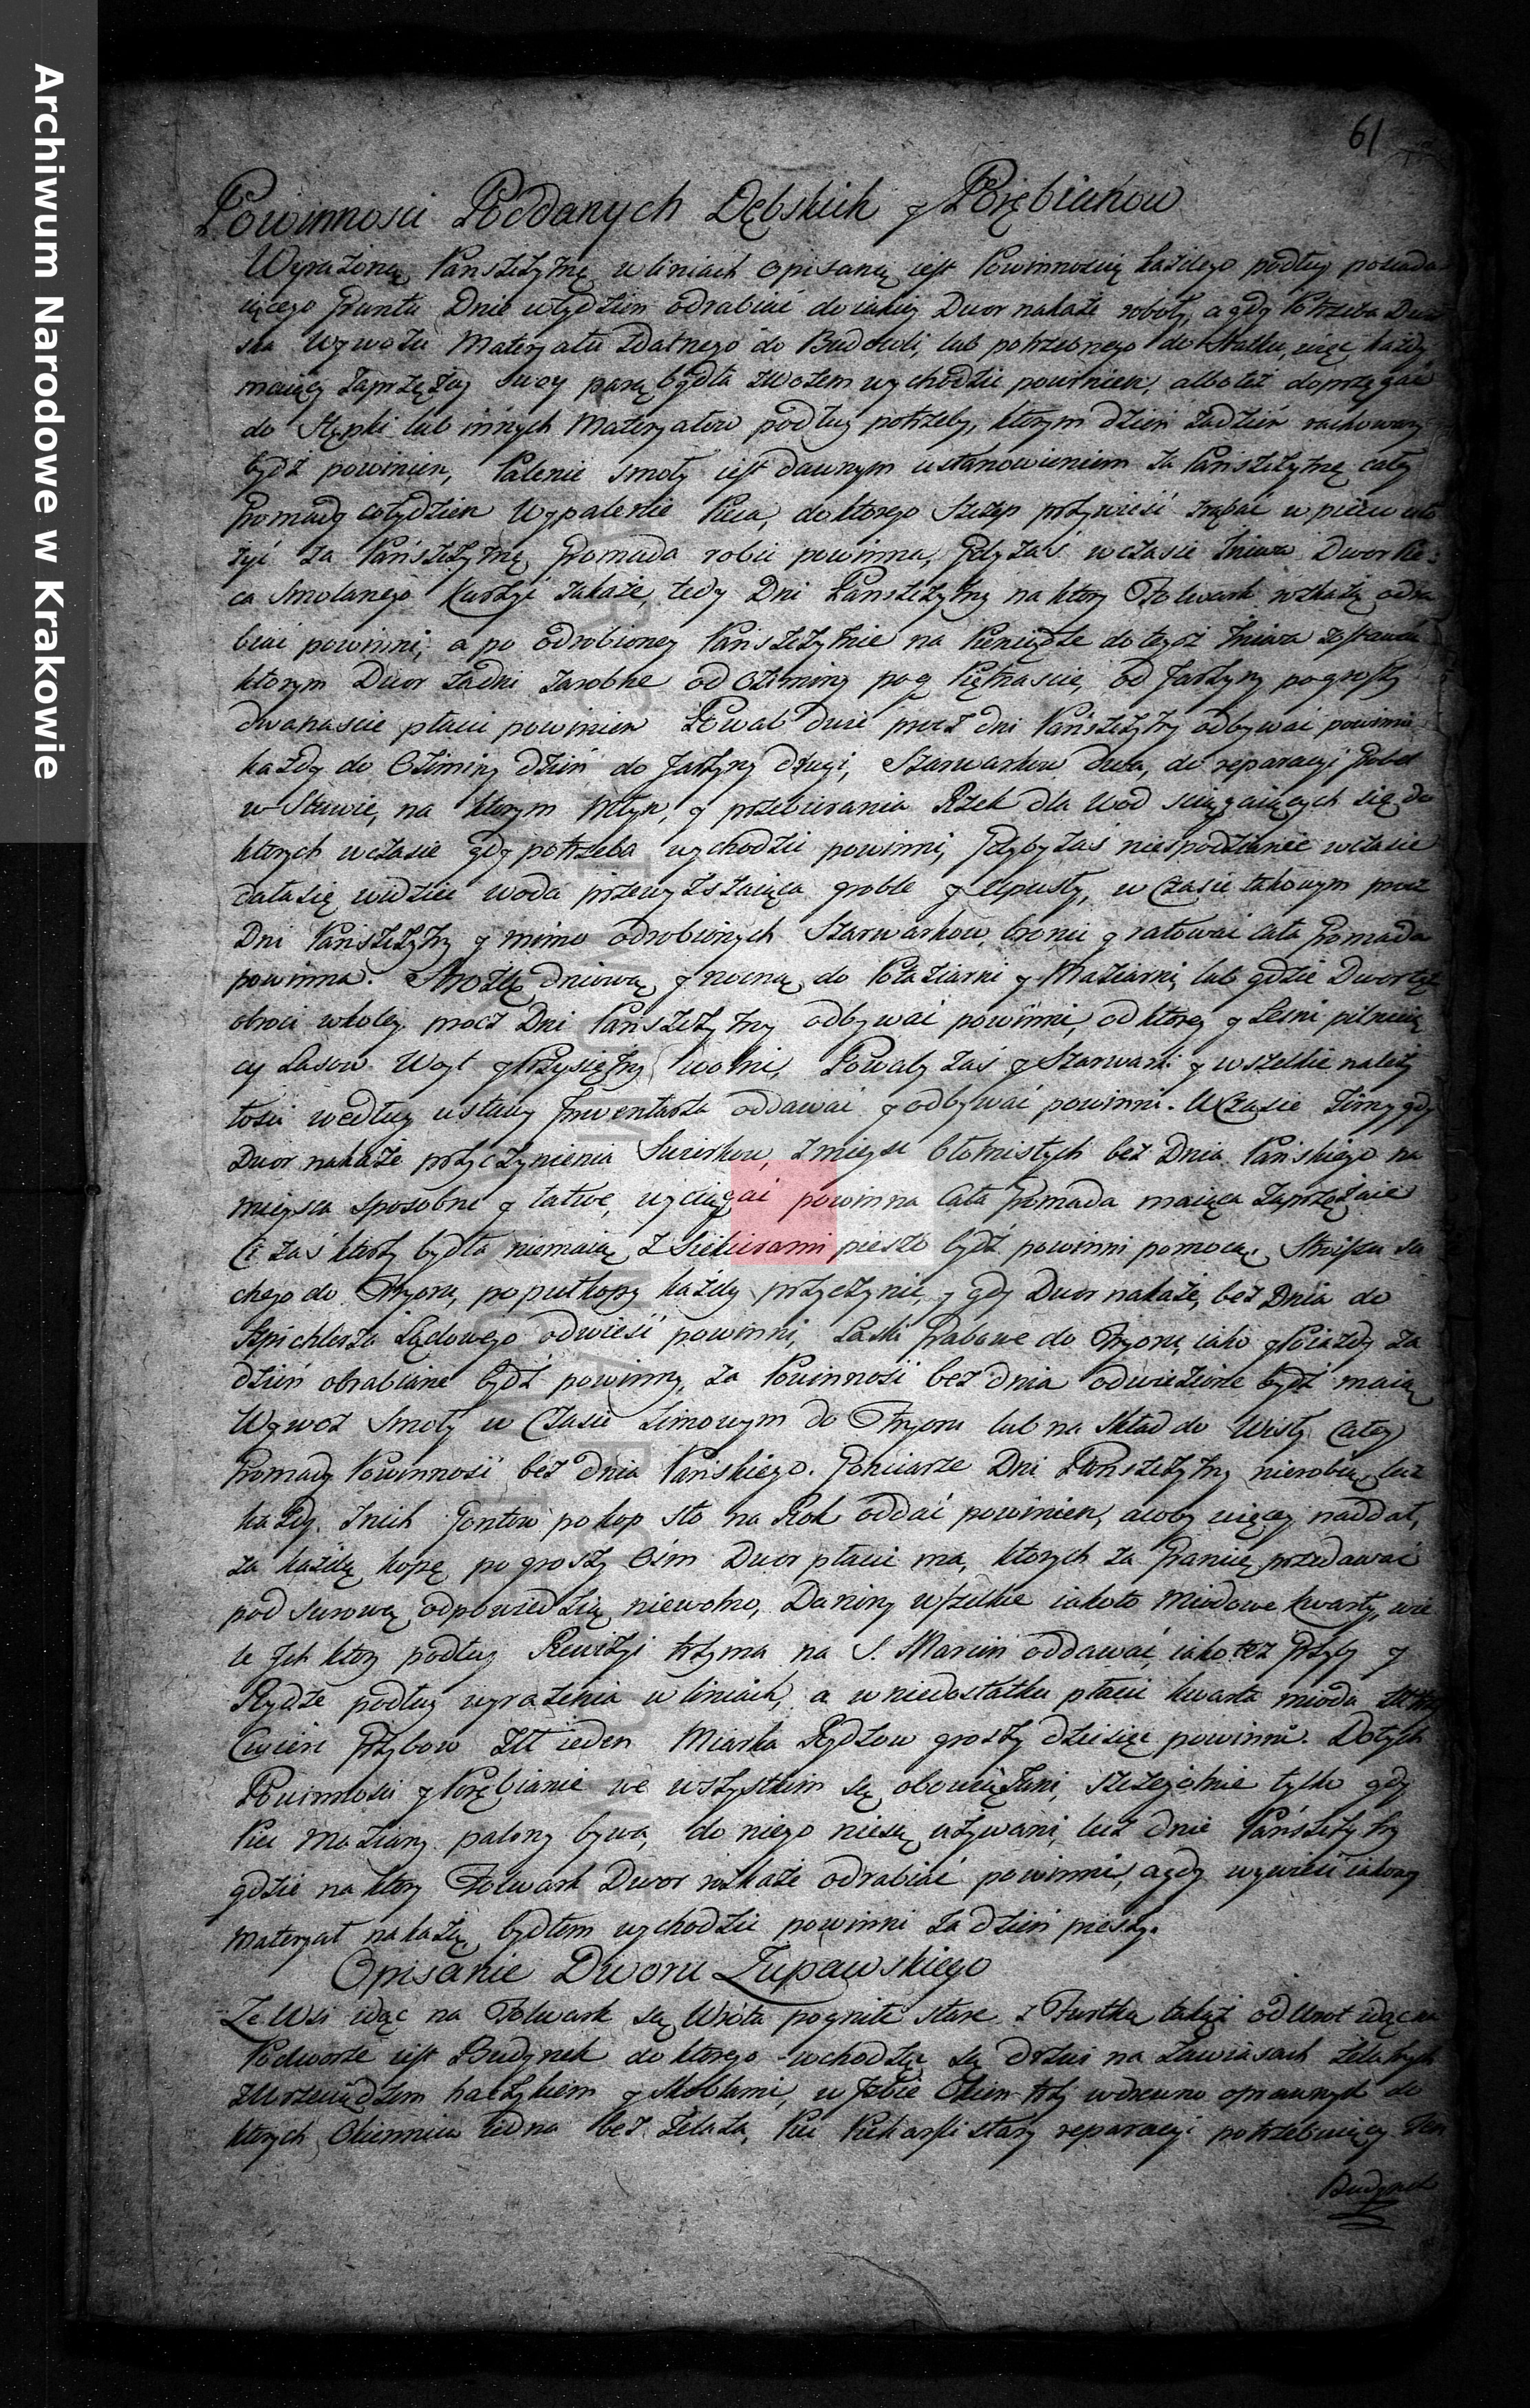 Archiwum Narodowe w Krakowie
61
Powinnosci Poddanych Dębskich y Porębianow
Wyrażoną Panszczyznę w liniach opisaną iest Powinnością każdego podług posiada-
iącego Gruntu Dnie w tydzien odrabiać do iakiey Dwor nakaże roboty, a gdy Potrzeba Dwor
ska Wywozu Materyału Zdatnego do Budowli, lub potrzebnego do Statku, więc każdy
maiący Zaprzężay swoy parą bydła z Wozem wychodzić powinien, albo też doprzęgać
do Stępki lub innych Materyałow podług potrzeby, ktorym dzień za dzień rachowany
bydź powinien, Palenie smoły iest dawnym ustanowieniem za Pańszczyznę całey
Gromady co tydzien Wypalenie Pieca, do ktorego Szczep przywieść zrąbać w piecu uło
żyć za Pańszczyznę Gromada robić powinna, Gdy zaś w czasie żniwa Dwor Pie-
ca Smolanego Kurzyć zakaże, tedy Dni Panszczyzny na ktory Folwark wskażą odra
biać powinni, a po odrobioney Pańszczyznie na Pieniądze do tegoż żniwa
ktorym Dwor od Oziminy po g Piętnascie, od Jarzyny po groszy
dwanascie płacić powinien Powab dwie procz dni Pańszczyzny odbywać powinni
każdy do Oziminy dzień do Jarzyny drugi, Szarwarkow dwa, do reparacyi Grobel
w Stawie, na ktorym Młyn, y przebierania Rzek dla wod sciągaiących się do
ktorych w czasie gdy potrzeba wychodzić powinni, Gdyby zaś niespodzianie w czasie
dała się widzieć woda przewyższaiąca groble y upusty, w Czasie takowym procz
Dni Pańszczyzny y mimo odrobionych Szarwarkow, bronić y ratować cała Gromada
powinna. Strożę dniową y nocną do Potaziarni y Maziarni, lub gdzie Dwor tęż
obroci w koley procz Dni Panszczyzny odbywać powinni, od ktorey y Leśni pilnuią
cy Lasow Woyt y Przysiężny wolni, Powaby zaś y Szarwarki y wszelkie należy
tości według ustawy Inwentarza oddawać y odbywać powinni. W Czasie Zimy gdy
Dwor nakaże przyczynienia z mieysc błotnistych bez Dnia Pańskiego na
mieysca sposobne y łatwe, wyciągać powinna Cała Gromada maiąca Zaprzężaie
Ci zaś ktorzy bydła niemaią, z Siekierami pieszo bydź powinni pomocą. su
chego do Tryoru, po puł kopy każdy przyczynić, y gdy Dwor nakaże, bez Dnia do
Szpichlerza Lądowego odwieść powinni, Laski Grabowe do Tryoru iako y Gwiazdy za
dzień obrabiane bydź powinny, za Powinność bez dnia odwiezione bydź maią
Wywoz Smoły w Czasie Zimowym do Tryoru lub na Skład do Wisły Całey
Gromady Powinność bez dnia Pańskiego. Gonciarze Dni Panszczyzny nierobią, lecz
każdy z nich Gontow po kop sto na Rok oddać powinien, a coby więcey naddał,
za każdą kopę po groszy Ośm Dwor płacić ma, ktorych za Granicę przedawać
pod surową odpowiedzią niewolno, Daniny wszelkie iako to Miodowe kwarty, wie
le Ich ktory podług Rewizyi trzyma na S. Marcin oddawać, iako też Grzyby y
Rydze podług wyrażenia w liniach, a w niedostatku płacić kwarta miodu
Cwierć Grzybow Złł ieden Miarka Rydzow groszy dziesięć powinni. Do tych
Powinnosci y Porębianie we wszystkim są obowiązani, szczegolnie tylko gdy
Piec Maziany palony bywa, do niego niesą używani, lecz dnie Pańszczyzny
gdzie na ktory Folwark Dwor wskaże odrabiać powinni, a gdy wywieść iakowy
Materyał nakażą, bydłem wychodzić powinni za dzień pieszy.
Opisanie Dworu Zupawskiego
Ze Wsi idąc na Folwark są Wrota pogniłe stare z Furtką takąż od Wrot idąc na
Podworze iest Budynek do ktorego wchodząc są drzwi na Zawiasach żelaznych
z Wrzeciądzem haczykiem y Skoblami, w Izbie Okien trzy w drewno oprawnych do
ktorych Okiennica iedna bez Żelaza, Piec Piekarski stary reparacyi potrzebuiący Ten
Budynek